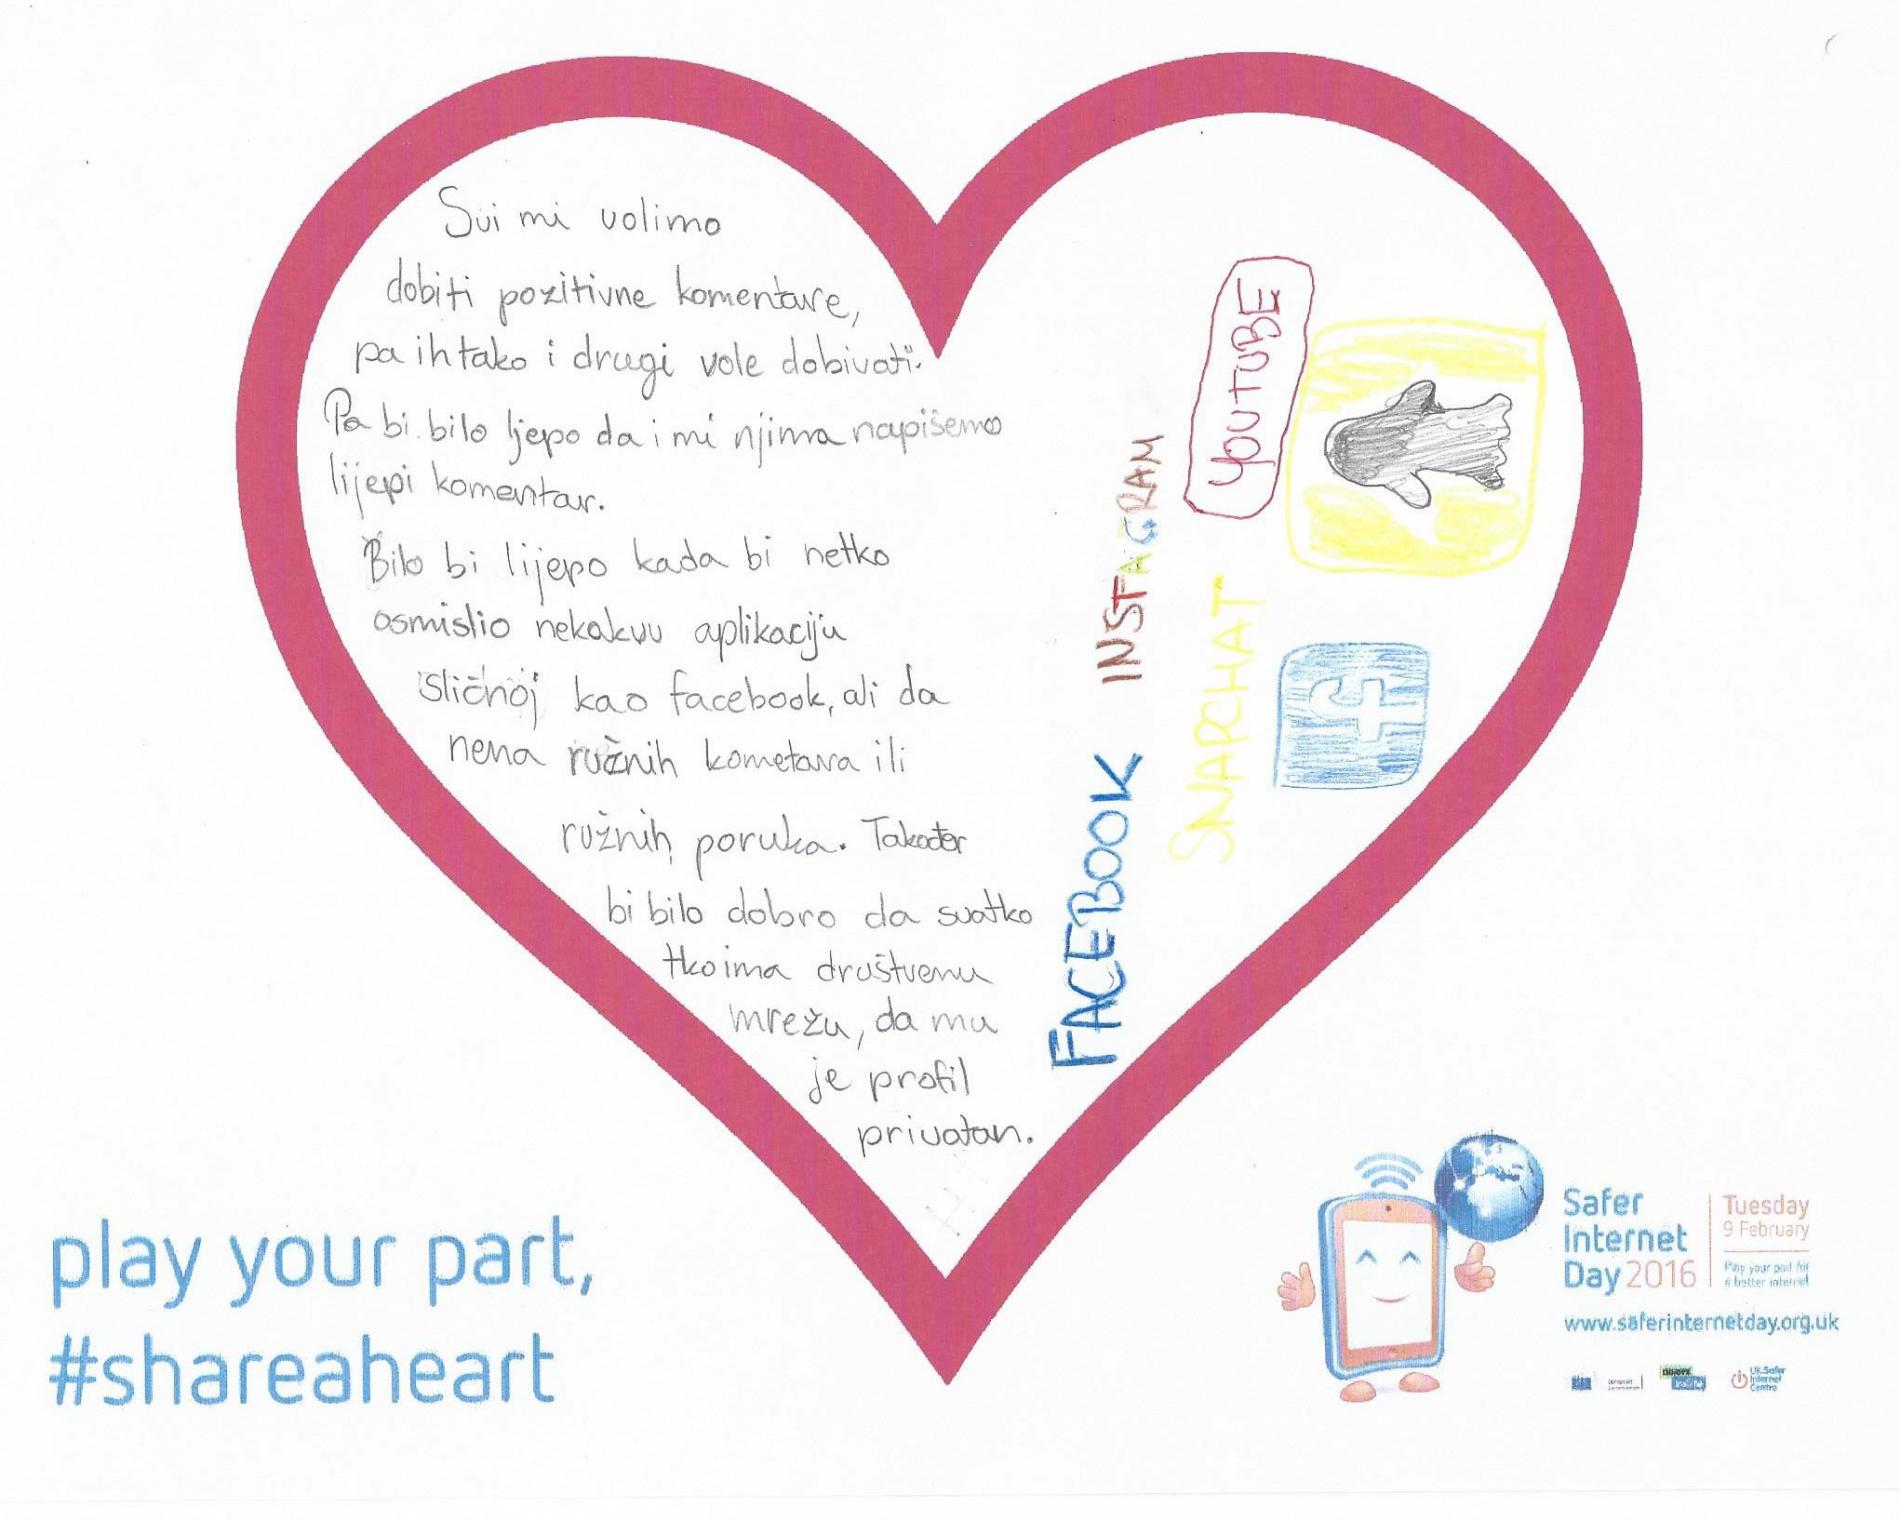 Svi mi volimo
dobiti pozitivne komentare,
pa ih tako i drugi vole dobivati.
Pa bi bilo ljepo da i mi njima napišemo
lijepi komentar.
Bilo bi lijepo kada bi netko
osmislio nekakvu aplikaciju
sličnoj kao facebook, ali da
nema ružnih kometara ili
ružnih poruka. Također
bi bilo dobro da svatko
tko ima društvenu
mrežu, da mu
je profil
privatan.
FACEBOOK INSTAGRAM
SNAPCHAT YOUTUBE
f
play your part,
#shareaheart
Safer
Internet
Day 2016
Tuesday
9 February
Play your part for
a better internet
www.saferinternetday.org.uk
UK Safer
Internet
Centre